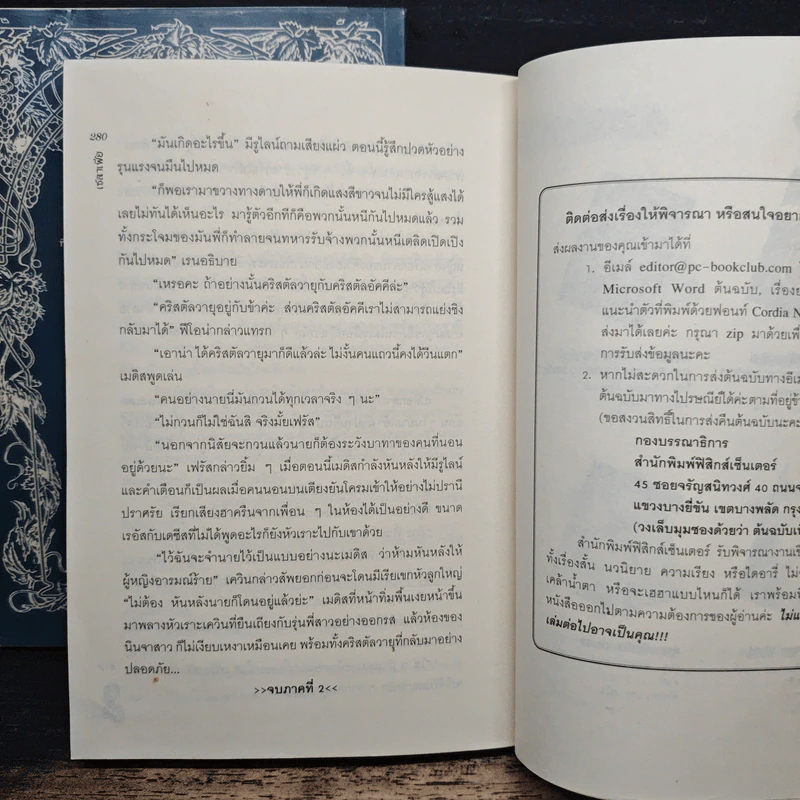 280
เซลาเฟีย
“มันเกิดอะไรขึ้น” มีรูไลน์ถามเสียงแผ่ว ตอนนี้รู้สึกปวดหัวอย่าง
รุนแรงจนมึนไปหมด
“ก็พอเรามาขวางทางดาบให้พี่ก็เกิดแสงสีขาวจนไม่มีใครสู้แสงได้
เลยไม่ทันได้เห็นอะไร มารู้ตัวอีกทีก็คือพวกนั้นหนีกันไปหมดแล้ว รวม
ทั้งกระโจมของมันพี่ก็ทำลายจนทหารรับจ้างพวกนั้นหนีเตลิดเปิดเปิง
กันไปหมด” เรนอธิบาย
“เหรอคะ ถ้าอย่างนั้นคริสตัลวายุกับคริสตัลอัคคีล่ะ”
“คริสตัลวายุอยู่กับข้าค่ะ ส่วนคริสตัลอัคคีเราไม่สามารถแย่งชิง
กลับมาได้” ฟีโอน่ากล่าวแทรก
“เอาน่า ได้คริสตัลวายุมาก็ดีแล้วล่ะ ไม่งั้นคนแถวนี้คงได้วีนแตก”
เมดิสพูดเล่น
“คนอย่างนายนี่มันกวนได้ทุกเวลาจริง ๆ นะ”
“ไม่กวนก็ไม่ใช่ฉันสิ จริงมั้ยเฟรัส”
“นอกจากนิสัยจะกวนแล้วนายก็ต้องระวังบาทาของคนที่นอน
อยู่ด้วยนะ” เฟรัสกล่าวยิ้ม ๆ เมื่อตอนนี้เมดิสกำลังหันหลังให้มีรูไลน์
และคำเตือนก็เป็นผลเมื่อคนนอนบนเตียงยันโครมเข้าให้อย่างไม่ปรานี
ปราศรัย เรียกเสียงฮาครืนจากเพื่อน ๆ ในห้องได้เป็นอย่างดี ขนาด
เรอัสกับเดซีสที่ไม่ได้พูดอะไรก็ยังหัวเราะไปกับเขาด้วย
“ไว้ฉันจะจำนายไว้เป็นแบบอย่างนะเมดิส ว่าห้ามหันหลังให้
ผู้หญิงอารมณ์ร้าย” เควินกล่าวสัพยอกก่อนจะโดนมีเรียเขกหัวลูกใหญ่
“ไม่ต้อง หันหลังนายก็โดนอยู่แล้วย่ะ” เมดิสที่หน้าทิ่มพื้นเงยหน้าขึ้น
มาพลางหัวเราะเควินที่ยืนเถียงกับรุ่นพี่สาวอย่างออกรส แล้วห้องของ
นินจาสาว ก็ไม่เงียบเหงาเหมือนเคย พร้อมทั้งคริสตัลวายุที่กลับมาอย่าง
ปลอดภัย...
>>จบภาคที่ 2<<
ติดต่อส่งเรื่องให้พิจารณา หรือสนใจอยา
ส่งผลงานของคุณเข้ามาได้ที่
1. อีเมล์ editor@pc-bookclub.com
Microsoft Word ต้นฉบับ, เรื่องย
แนะนำตัวที่พิมพ์ด้วยฟอนท์ Cordia N
ส่งมาได้เลยค่ะ กรุณา zip มาด้วยเพื่
การรับส่งข้อมูลนะคะ
2. หากไม่สะดวกในการส่งต้นฉบับทางอีเม
ต้นฉบับมาทางไปรษณีย์ได้ค่ะตามที่อยู่ข้า
(ขอสงวนสิทธิ์ในการส่งคืนต้นฉบับนะคะ
กองบรรณาธิการ
สำนักพิมพ์ฟิสิกส์เซ็นเตอร์
45 ซอยจรัญสนิทวงศ์ 40 ถนนจ
แขวงบางยี่ขัน เขตบางพลัด กรุง
(วงเล็บมุมซองด้วยว่า ต้นฉบับเพื
สำนักพิมพ์ฟิสิกส์เซ็นเตอร์ รับพิจารณางานเขี
ทั้งเรื่องสั้น นวนิยาย ความเรียง หรือไดอารี่ ไม่
เคล้าน้ำตา หรือจะเฮฮาแบบไหนก็ได้ เราพร้อมที่
หนังสือออกไปตามความต้องการของผู้อ่านค่ะ ไม่แ
เล่มต่อไปอาจเป็นคุณ!!!